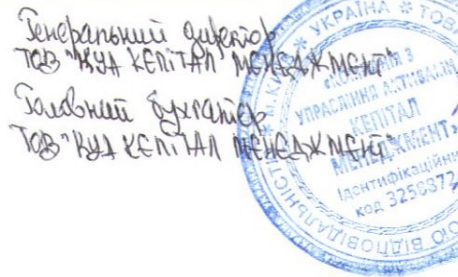 Генеральний директор
ТОВ "КУА КЕПІТАЛ МЕНЕДЖМЕНТ"
Головний бухгалтер
ТОВ "КУА КЕПІТАЛ МЕНЕДЖМЕНТ"
УКРАЇНА * ТОВА
«КОМПАНІЯ З
УПРАВЛІННЯ АКТИВАМИ
КЕПІТАЛ
МЕНЕДЖМЕНТ»
Ідентифікаційний
код 3258872
ОЮ ВІДПОВІДАЛЬНІСТ